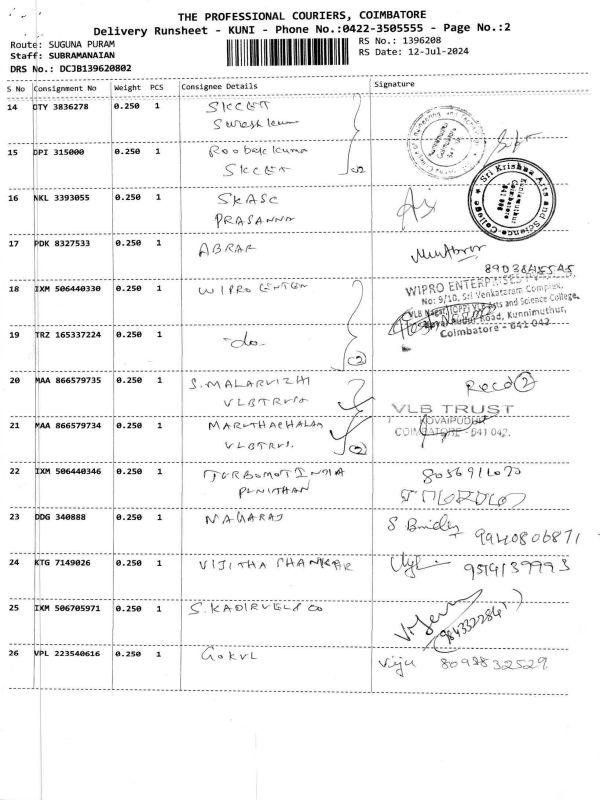 THE PROFESSIONAL COURIERS, COIMBATORE
Delivery Runsheet - KUNI - Phone No.:0422-3505555 - Page No.:2
Route: SUGUNA PURAM
RS No.: 1396208
Staff: SUBRAMANAIAN
RS Date: 12-Jul-2024
DRS No.: DCJB139620802
S No Consignment No Weight PCS Consignee Details Signature
14 DTY 3836278 0.250 1 SKCET
Suresh kumar
15 DPI 315000 0.250 1
SKCET
16 NKL 3393055 0.250 1 SKASC
PRASANNA
Sri Krishna Arts and Science College
Kuniamuthur
Coimbatore
641 008
17 PDK 8327533 0.250 1 ABRAR
18 IXM 506440330 0.250 1 WIPRO ENTER
WIPRO ENTERPRISES
No: 9/10, Sri Venkataram Complex,
VLB Nagar, (OPP) VLB Arts and Science College,
Road, Kunnimuthur,
Coimbatore - 641 042
19 TRZ 165337224 0.250 1 -do-
(2)
20 MAA 866579735 0.250 1 S. MALARVIZHI
VLBTRUST
Recd (2)
VLB TRUST
KOVAIPUDUR
COIMBATORE - 641 042.
21 MAA 866579734 0.250 1 MARUTHACHALAM
VLBTRUS.
(2)
22 IXM 506440346 0.250 1 TURBOMOT INDIA
PUNITHAN
23 DDG 340888 0.250 1 NAGARAJ
9940806871
24 KTG 7149026 0.250 1 VIJITHA SHANKAR
9519139993
25 IXM 506705971 0.250 1 S. KADIRVEL & CO
9843322841
26 VPL 223540616 0.250 1 GOKUL
Viju 8098832529